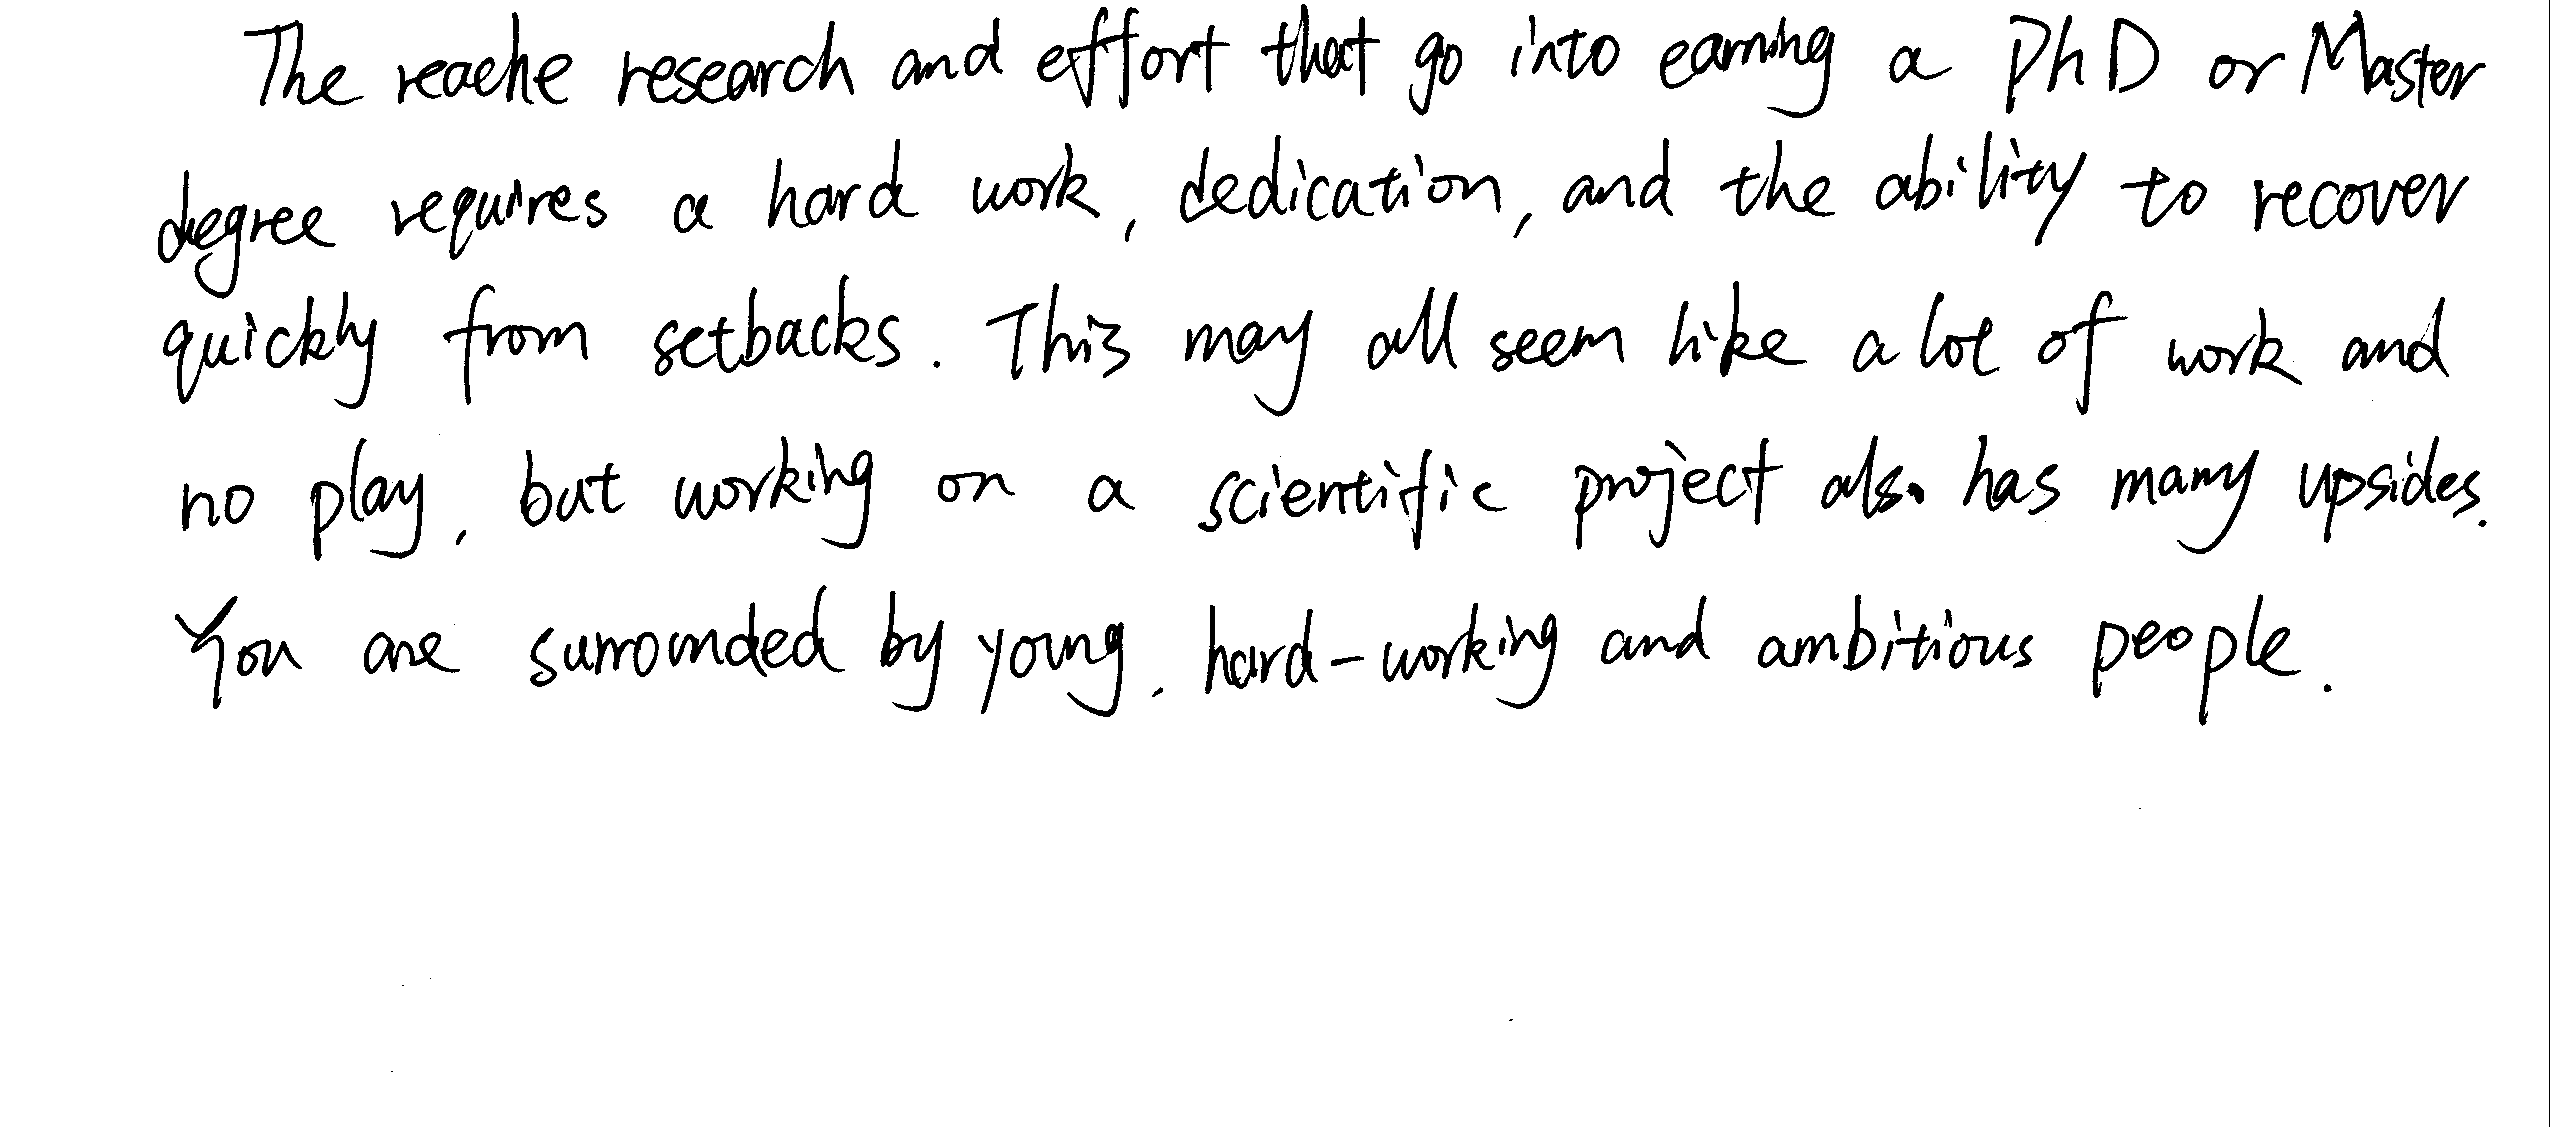 The reache research and effort that go into earning a PhD or Master
degree requires a hard work, dedication, and the ability to recover
quickly from setbacks. This may all seem like a lot of work and
no play, but working on a scientific project also has many upsides.
You are surrounded by young, hard-working and ambitious people.